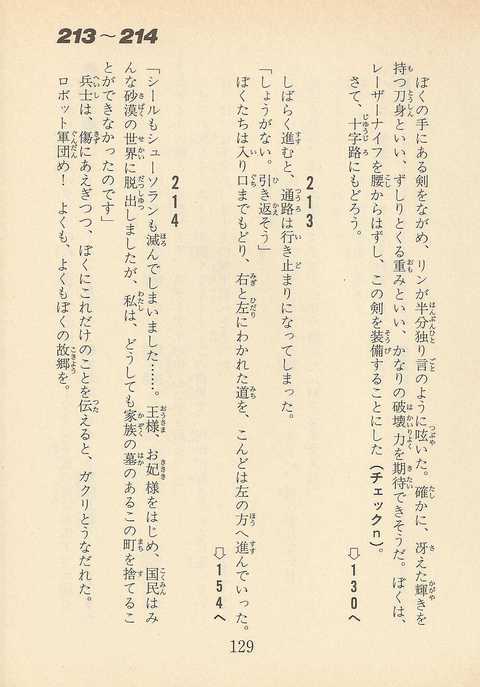 213～214
ぼくの手にある剣をながめ、リンが半分独り言のように呟いた。確かに、冴えた輝きを
持つ刀身といい、ずしりとくる重みといい、かなりの破壊力を期待できそうだ。ぼくは、
レーザーナイフを腰からはずし、この剣を装備することにした（チェックn）。
さて、十字路にもどろう。
⇨130へ
213
しばらく進むと、通路は行き止まりになってしまった。
「しょうがない。引き返そう」
ぼくたちは入り口までもどり、右と左にわかれた道を、こんどは左の方へ進んでいった。
⇨154へ
214
「シールもシューソランも滅んでしまいました……。王様、お妃様をはじめ、国民はみ
んな砂漠の世界に脱出しましたが、私は、どうしても家族の墓のあるこの町を捨てるこ
とができなかったのです」
兵士は、傷にあえぎつつ、ぼくにこれだけのことを伝えると、ガクリとうなだれた。
ロボット軍団め！　よくも、よくもぼくの故郷を。
129